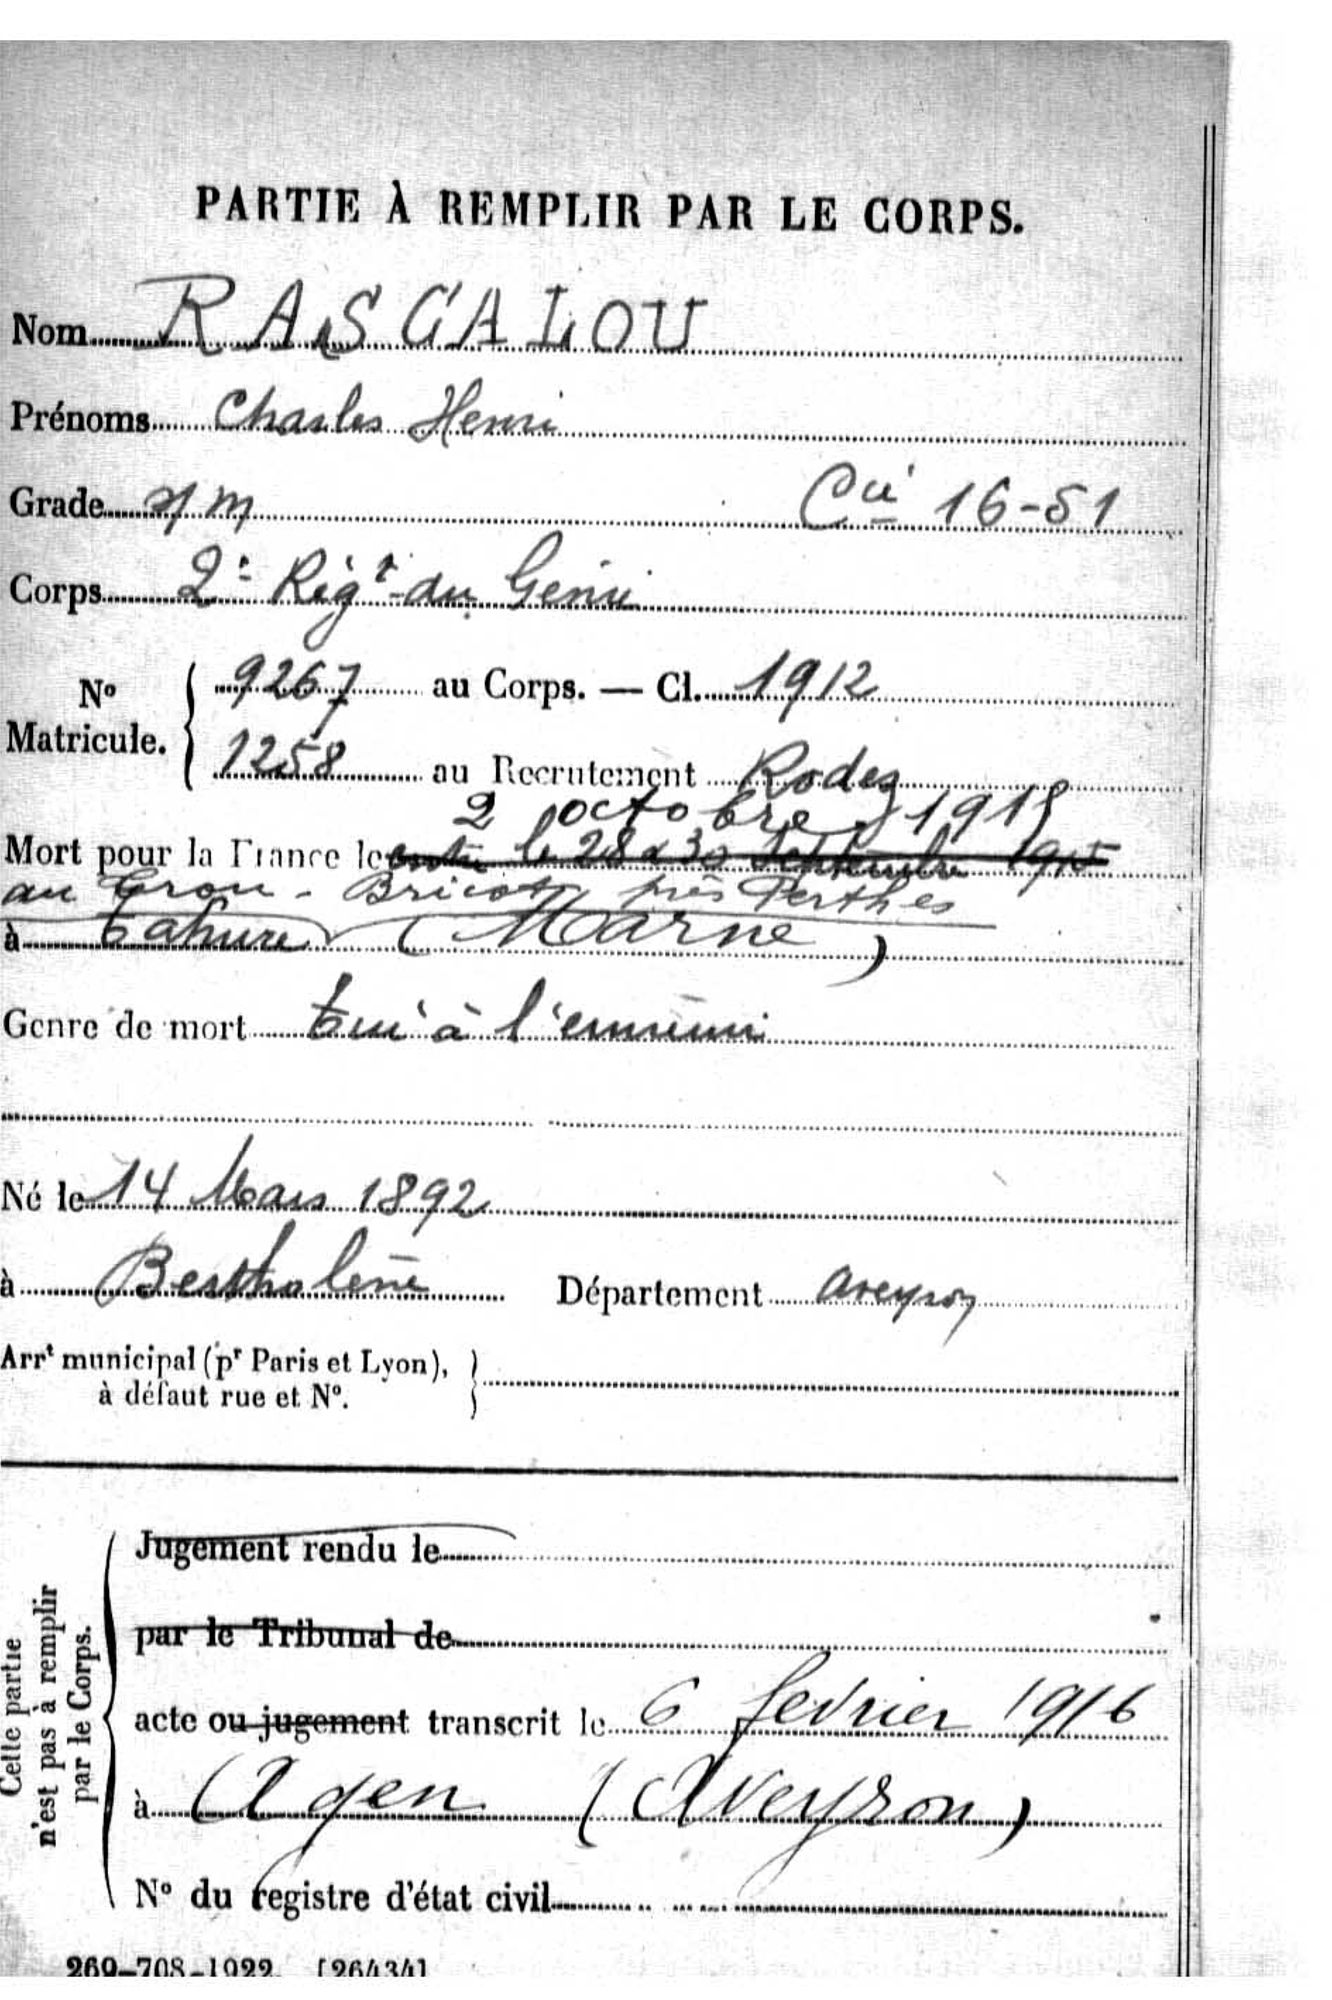 PARTIE À REMPLIR PAR LE CORPS.
Nom RASCALOU
Prénoms Charles Henri
Grade s/m Cie 16-51
Corps 2e Régt du Génie
No Matricule. 9267 au Corps. — Cl. 1912
1258 au Recrutement Rodez
2 octobre 1915
Mort pour la France le entre le 28 & 30 Septembre 1915
au Trou-Bricot près Perthes
à Tahure (Marne)
Genre de mort tué à l'ennemi
Né le 14 Mars 1892
à Bertholène Département Aveyron
Arrt municipal (pr Paris et Lyon),
à défaut rue et No.
Cette partie
n'est pas à remplir
par le Corps.
Jugement rendu le
par le Tribunal de
acte ou jugement transcrit le 6 février 1916
à Agen (Aveyron)
No du registre d'état civil
269-708-1922. [26434]